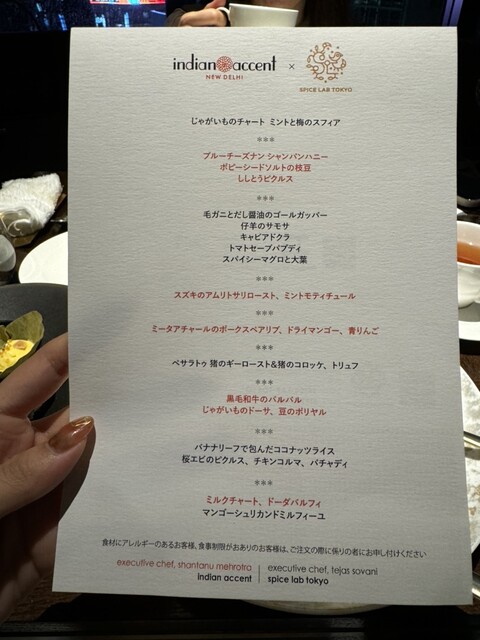 indian accent
NEW DELHI
×
SPICE LAB TOKYO
じゃがいものチャート ミントと梅のスフィア
***
ブルーチーズナン シャンパンハニー
ポピーシードソルトの枝豆
ししとうピクルス
***
毛ガニとだし醤油のゴールガッパー
仔羊のサモサ
キャビアドクラ
トマトセーブパプディ
スパイシーマグロと大葉
***
スズキのアムリトサリロースト、ミントモティチュール
***
ミータアチャールのポークスペアリブ、ドライマンゴー、青りんご
***
ペサラトゥ 猪のギーロースト&猪のコロッケ、トリュフ
***
黒毛和牛のバルバル
じゃがいものドーサ、豆のポリヤル
***
バナナリーフで包んだココナッツライス
桜エビのピクルス、チキンコルマ、パチャディ
***
ミルクチャート、ドーダバルフィ
マンゴーシュリカンドミルフィーユ
食材にアレルギーのあるお客様、食事制限がおありのお客様は、ご注文の際に係りの者にお申し付けください
executive chef, shantanu mehrotra
indian accent
executive chef, tejas sovani
spice lab tokyo